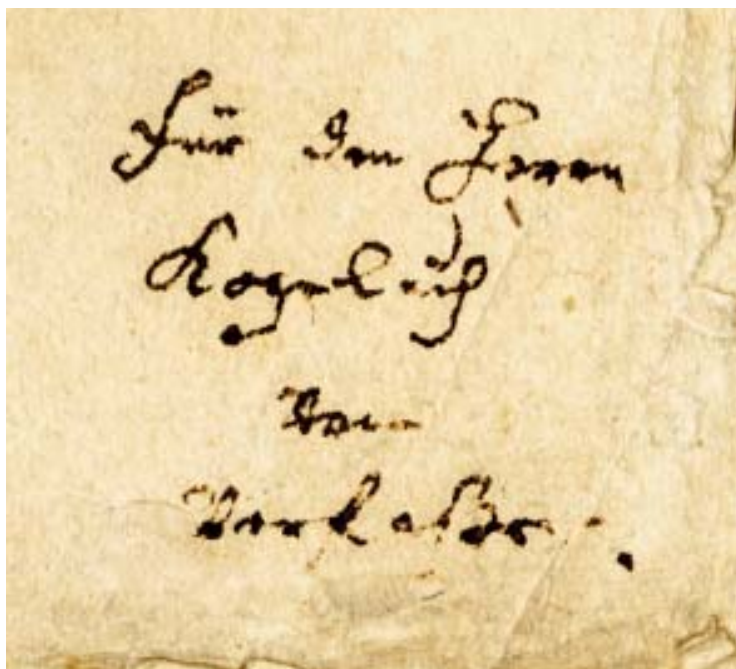 Für den Herrn
Kozeluch
Vom
Verfasser.